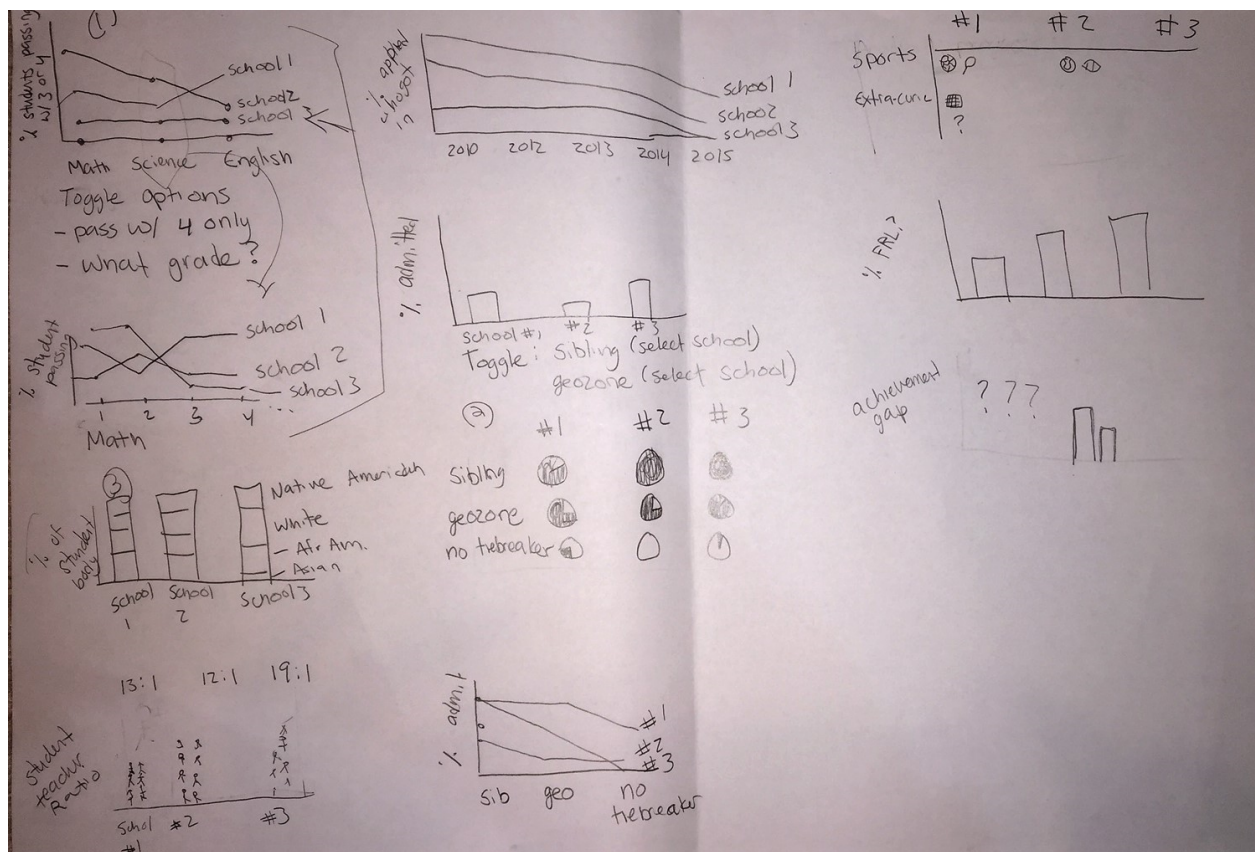 (1)
% students passing
w/ 3 or 4
school 1
school2
school
Math Science English
Toggle options
- pass w/ 4 only
- what grade?
% student
passing
school 1
school 2
school 3
1 2 3 4 ...
Math
3
% of
student
body
Native American
White
- Afr Am.
- Asian
School
1
School
2
School3
13:1 12:1 19:1
Student
teacher
Ratio
Schol
#1
#2
#3
school 1
school2
school3
2010 2012 2013 2014 2015
% admitted
school #1 #2 #3
Toggle: Sibling (select school)
geozone (select school)
2
#1 #2 #3
Sibling
geozone
no tiebreaker
% admit
#1
#2
#3
sib geo no
tiebreaker
#1 #2 #3
Sports
Extra-curic
?
% FRL?
achievement
gap
? ? ?